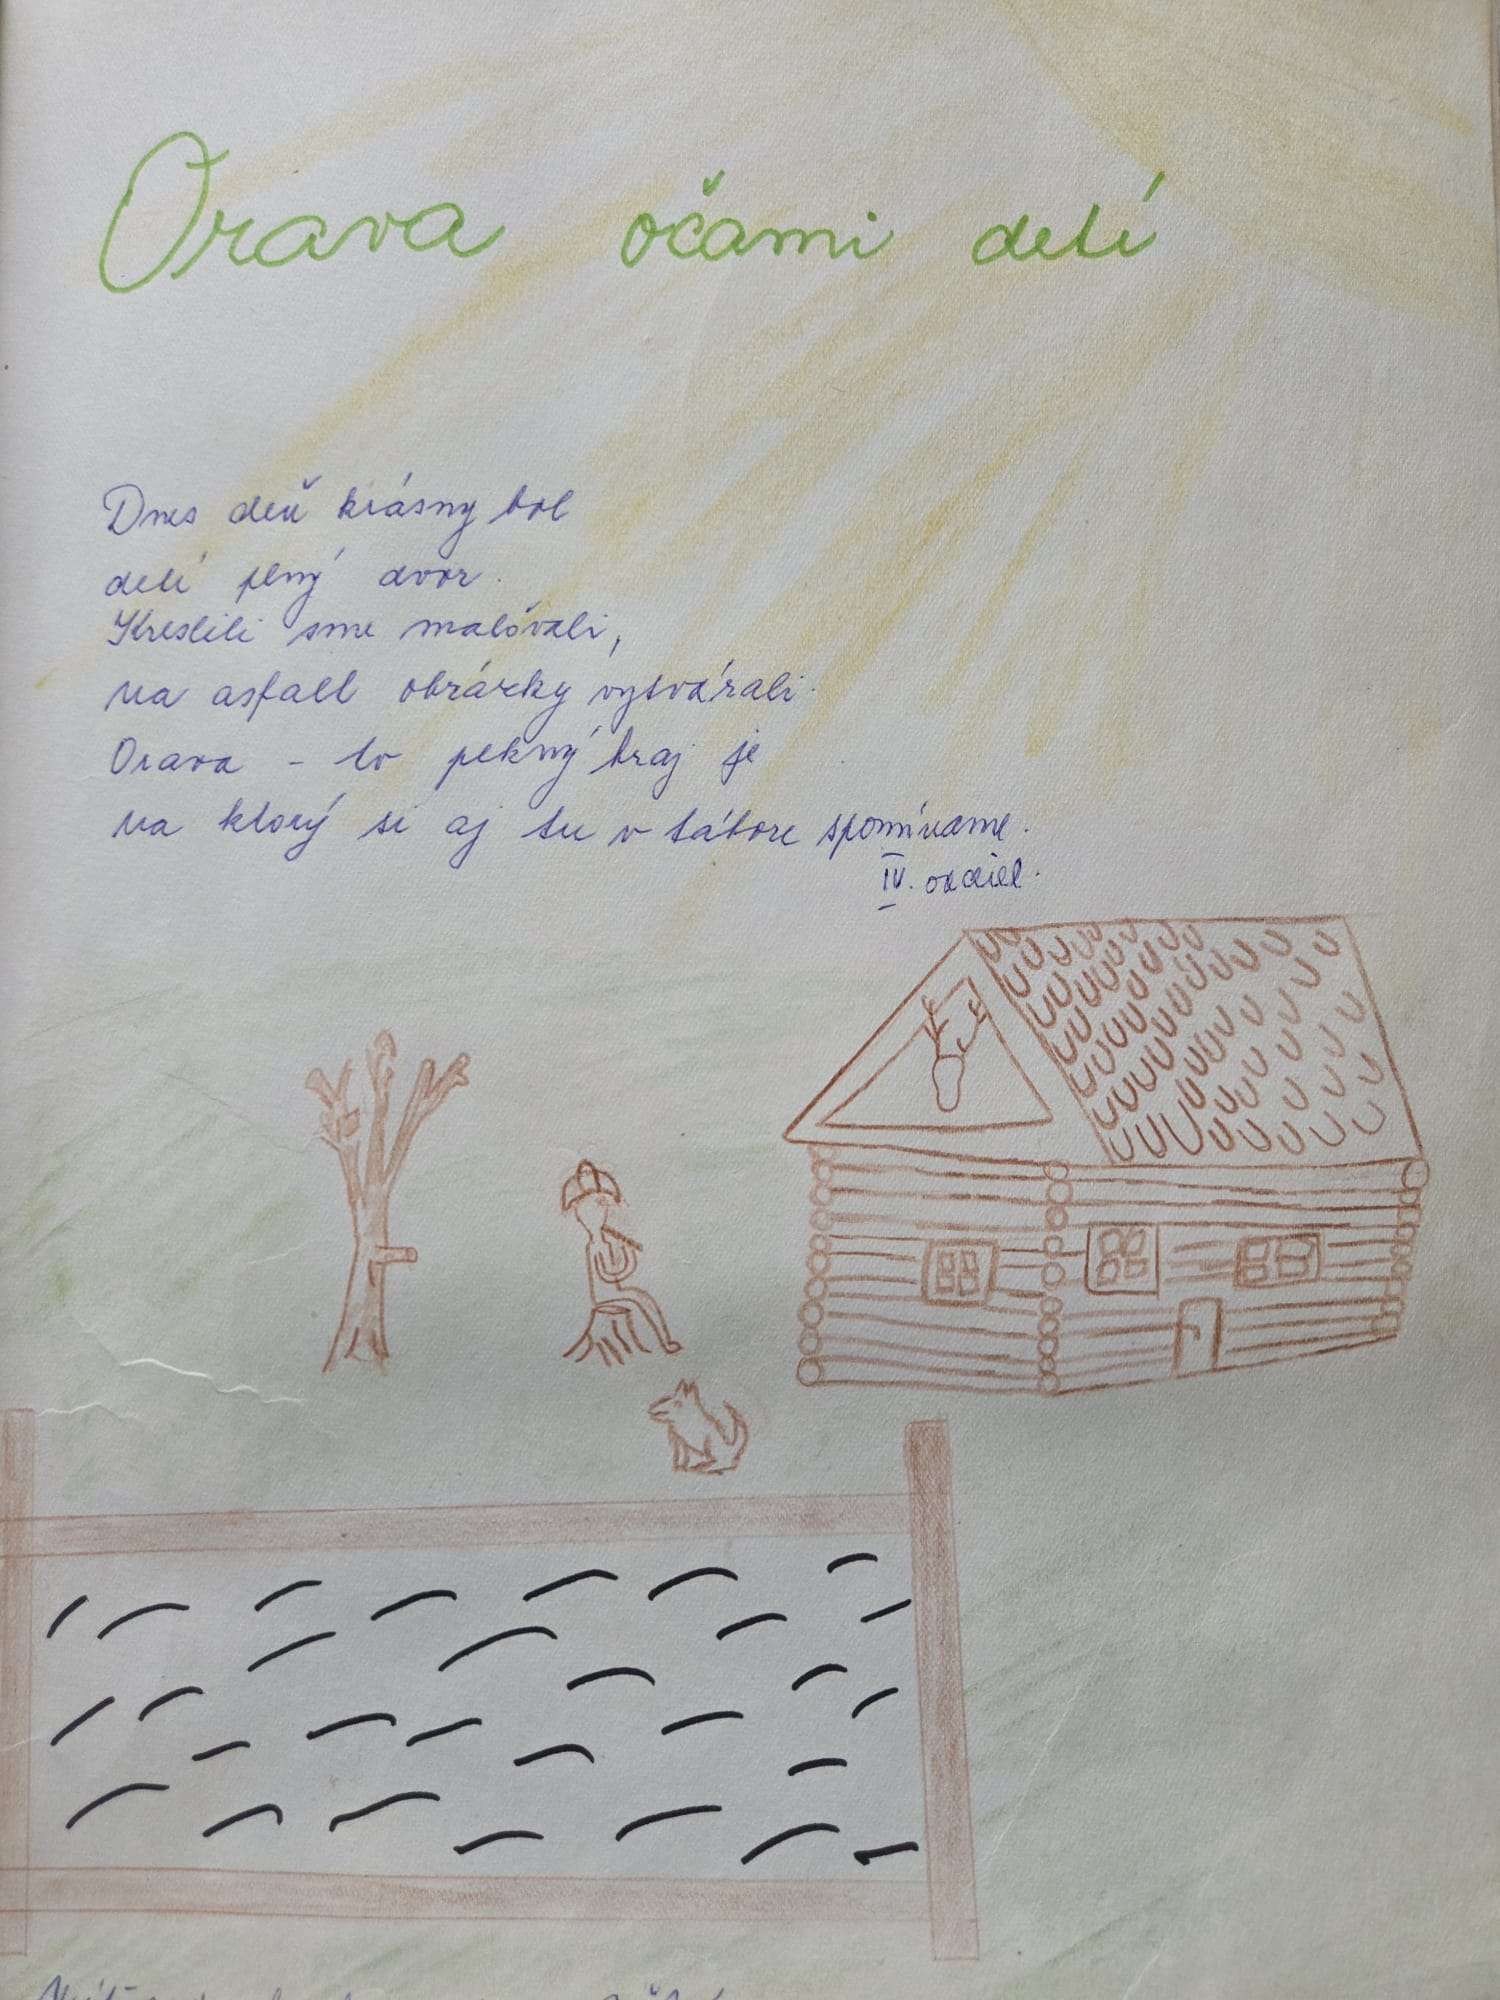 Orava očami detí
Dnes deň krásny bol
detí plný dvor.
Kreslili sme maľovali,
na asfalt obrázky vytvárali.
Orava - to pekný kraj je
na ktorý si aj tu v tábore spomíname.
IV. oddiel.